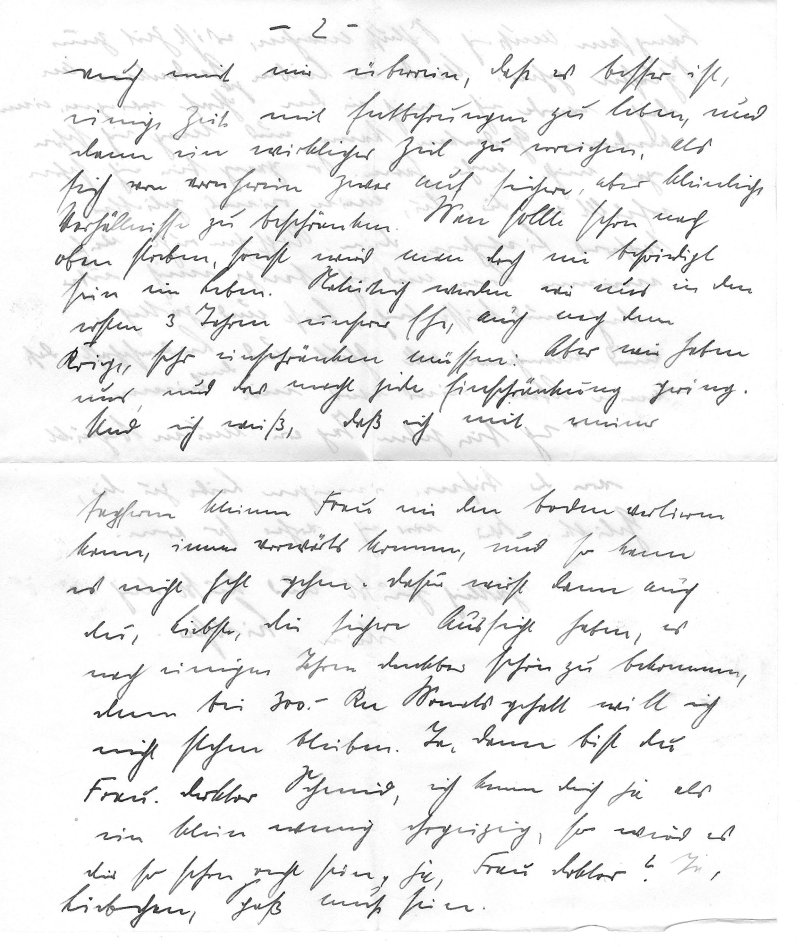 - 2 -
auch mit mir überein, daß es besser ist,
einige Zeit mit Entbehrungen zu leben, und
dann ein wirkliches Ziel zu erreichen, als
sich von vornherein zwar auf sichere, aber kleinliche
Verhältnisse zu beschränken. Man sollte schon nach
oben streben, sonst wird man doch nie befriedigt
sein im Leben. Natürlich werden wir uns in den
ersten 3 Jahren unserer Ehe, auch nach dem
Kriege, sehr einschränken müssen. Aber wir haben
uns, und das macht jede Einschränkung gering.
Und ich weiß, daß ich mit meiner
tapferen kleinen Frau nie den Boden verlieren
kann, immer vorwärts kommen, und so kann
es nicht fehl gehen. Dafür wirst dann auch
du, Liebste, die sichere Aussicht haben, es
nach einigen Jahren denkbar schön zu bekommen,
denn bei 300.- RM Monatsgehalt will ich
nicht stehen bleiben. Ja, dann bist du
Frau Doktor Schmid, ich kenn dich ja als
ein klein wenig ehrgeizig, so wird es
dir so schon recht sein, ja, Frau Doktor? Ja,
Liebchen, Spaß muß sein.